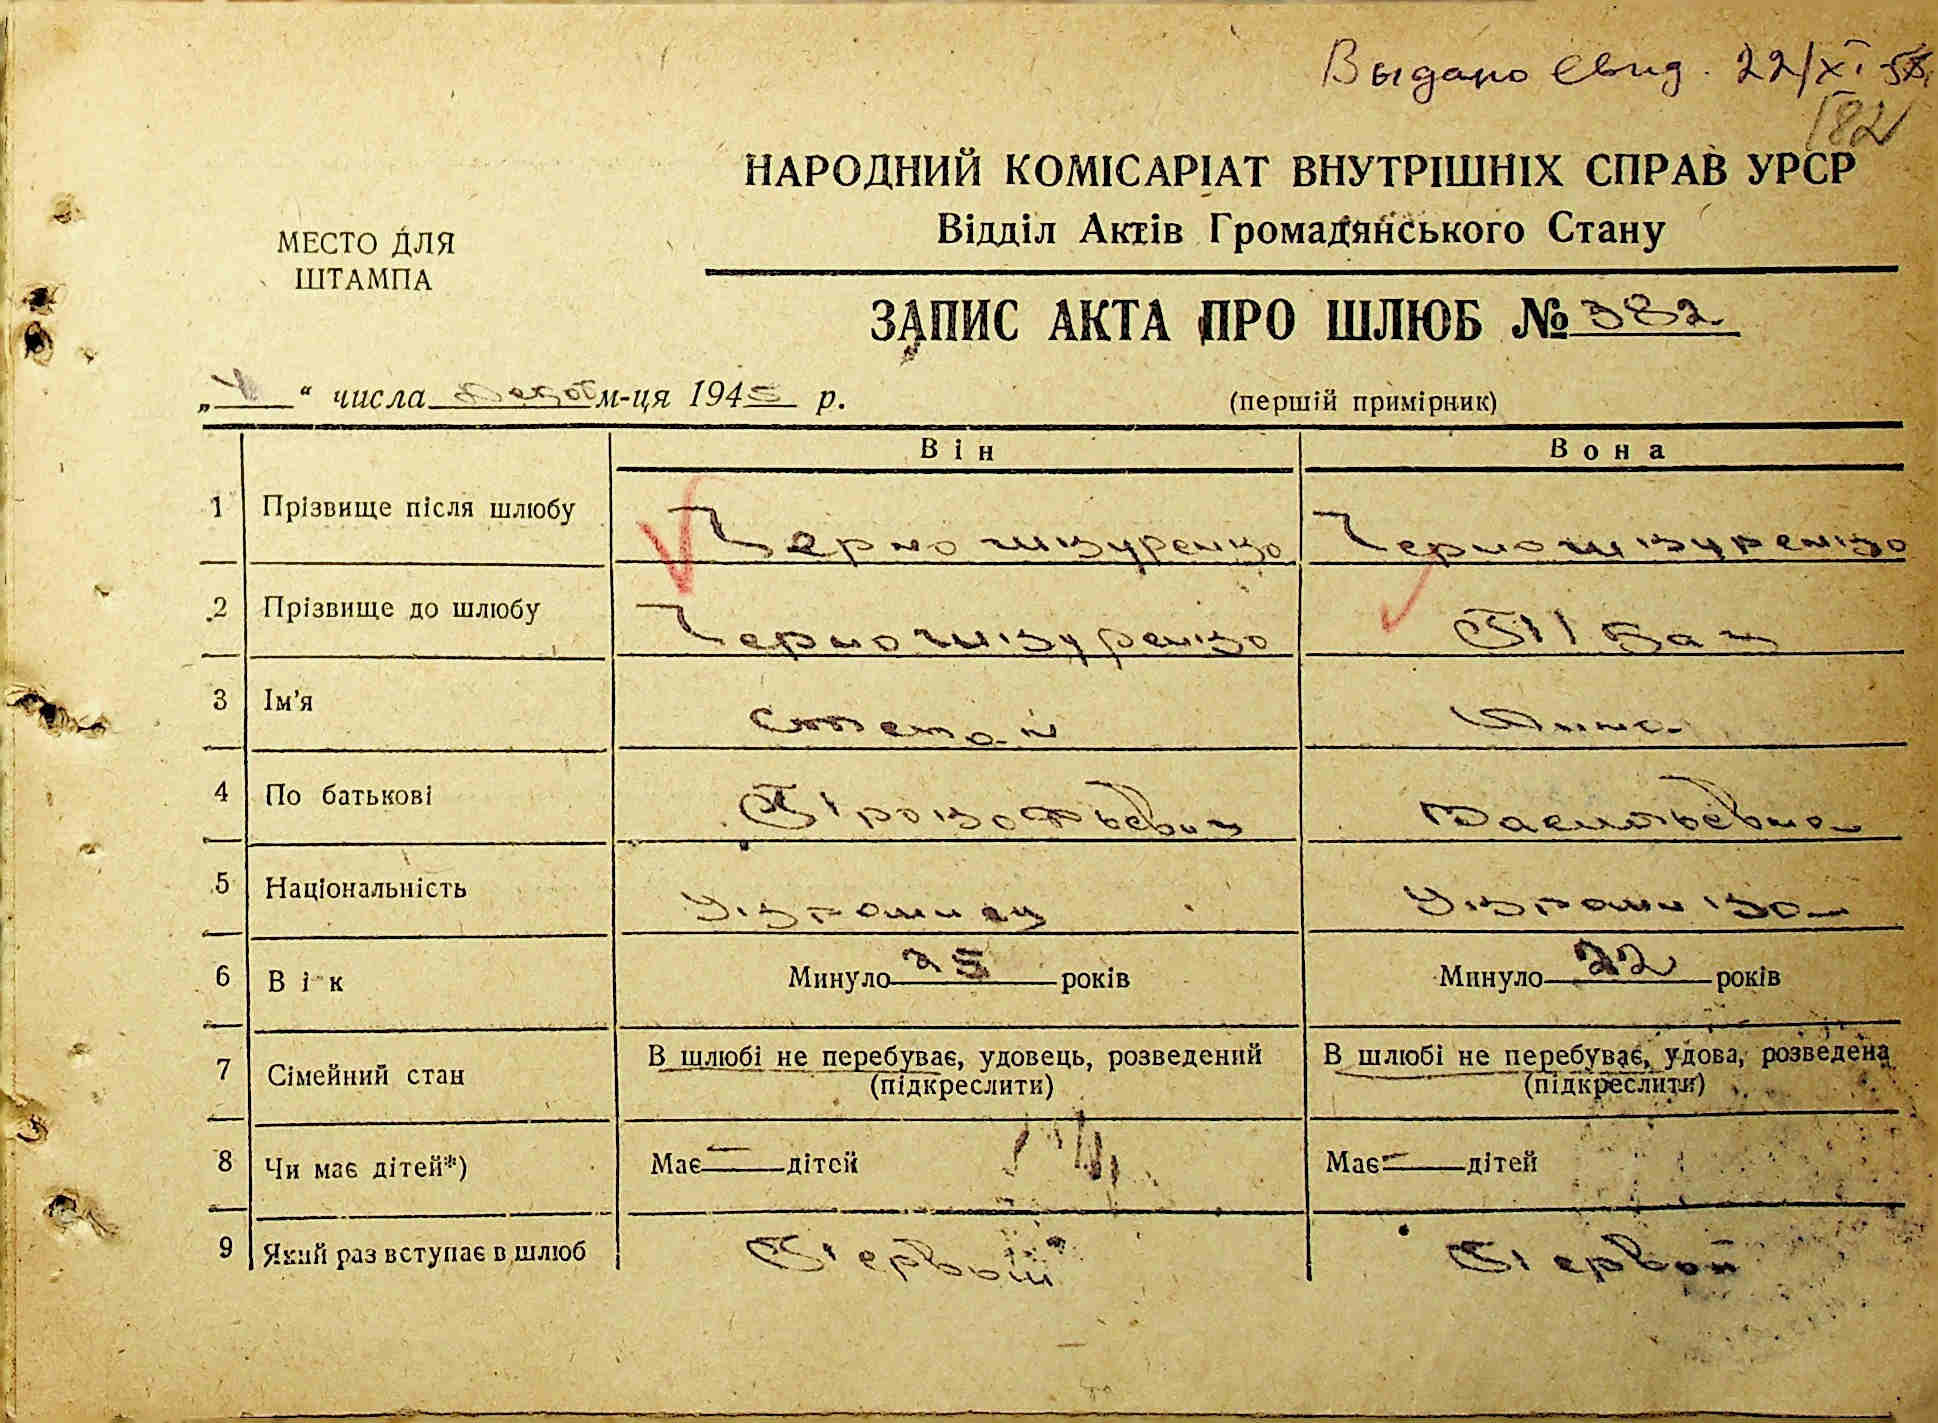 Выдано свид. 22/XI 58
182
НАРОДНИЙ КОМІСАРІАТ ВНУТРІШНІХ СПРАВ УРСР
Відділ Актів Громадянського Стану
МЕСТО ДЛЯ
ШТАМПА
ЗАПИС АКТА ПРО ШЛЮБ № 382
„ “ числа м-ця 1945 р.
(першій примірник)
Він Вона
1 Прізвище після шлюбу Черношкуренко Черношкуренко
2 Прізвище до шлюбу Черношкуренко Ткач
3 Ім’я Степан Анна
4 По батькові Прокофьевич Васильевна
5 Національність Украинец Украинка
6 Вік Минуло 25 років Минуло 22 років
7 Сімейний стан В шлюбі не перебуває, удовець, розведений (підкреслити) В шлюбі не перебуває, удова, розведена (підкреслити)
8 Чи має дітей*) Має — дітей Має — дітей
9 Який раз вступає в шлюб Первый Первый